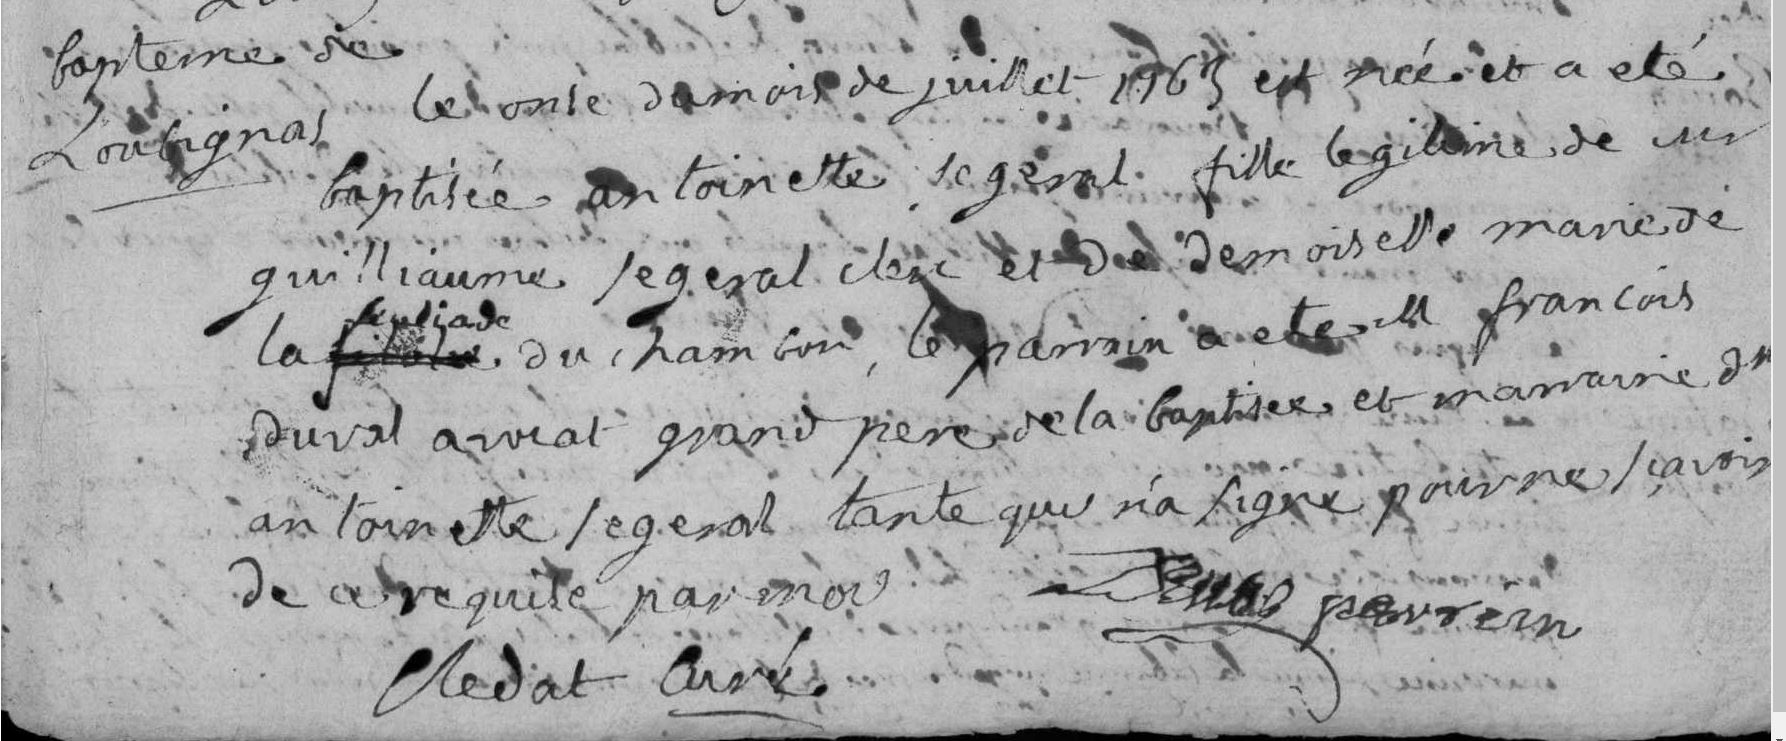 bapteme de
Loubignac
le onse du mois de juillet 1763 est née et a eté
baptisée antoinette segeral fille legitime de mr
guilliaume segeral clerc et de demoiselle marie de
la feuliade du chambon, le parrain a ete M francois
duval avocat grand pere de la baptisée et marraine dlle
antoinette segeral tante qui n'a signe pour ne sçavoir
de ce requise par moi
Duval perrein
Cledat Curé